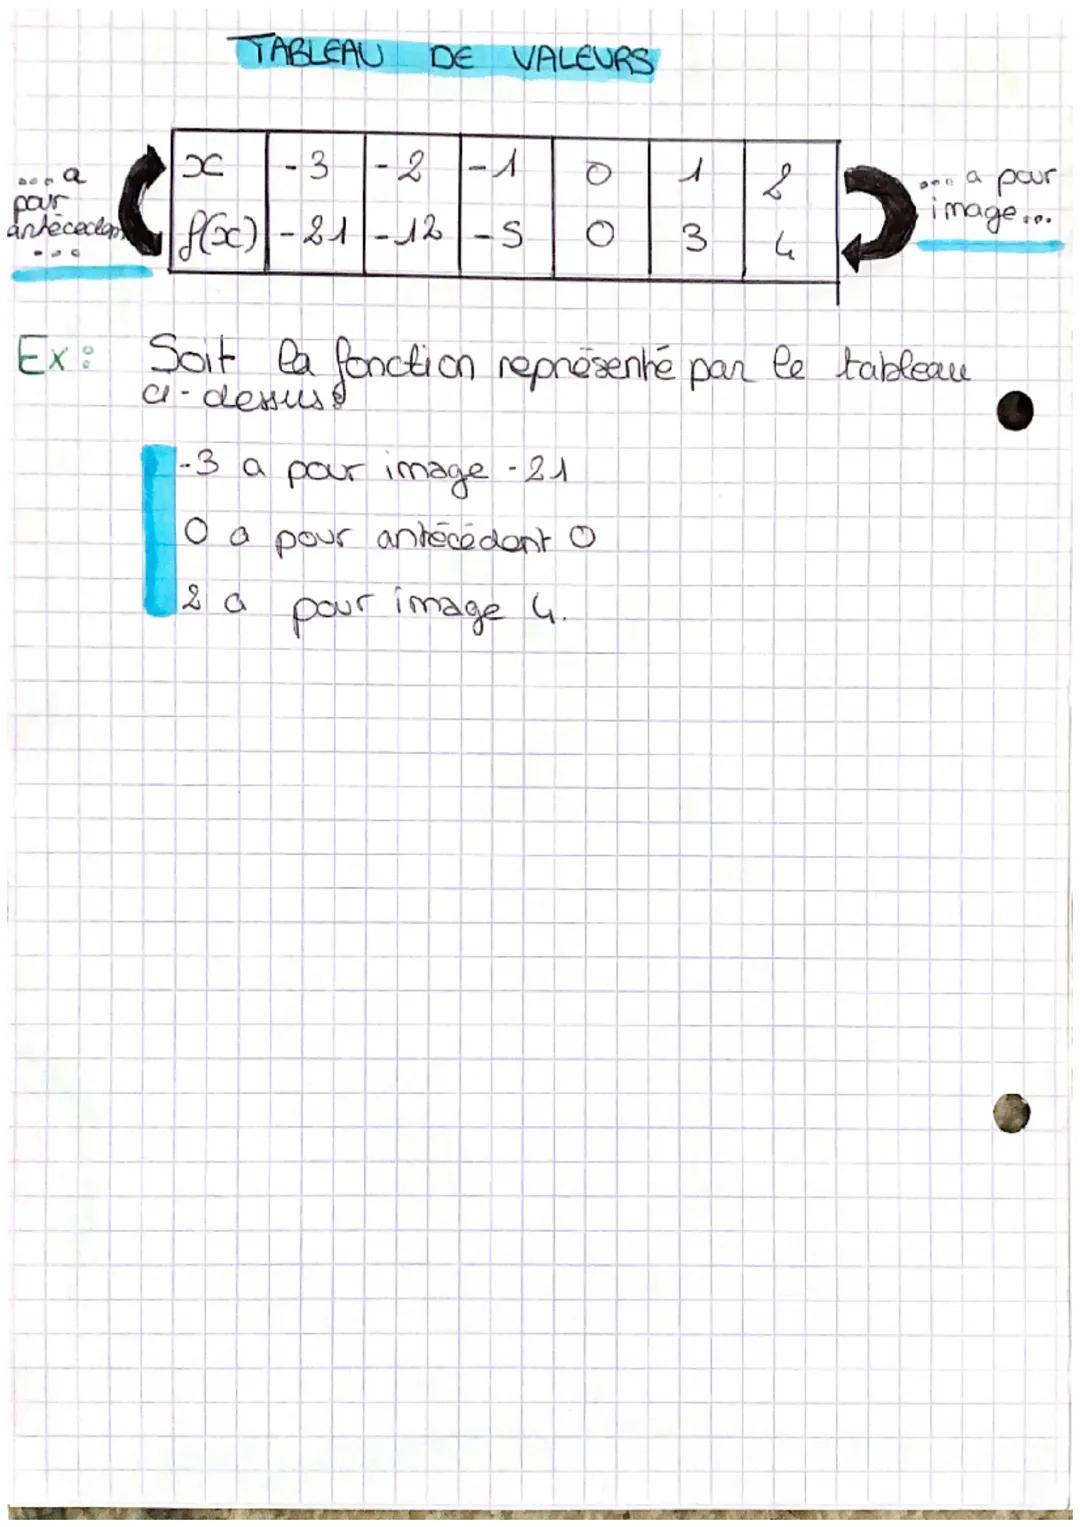 TABLEAU DE VALEURS
... a
pour
antécédent
...
x -3 -2 -1 0 1 2
f(x) -21 -12 -5 0 3 4
... a pour
image...
Ex: Soit la fonction représenté par le tableau
ci-dessus:
-3 a pour image -21
0 a pour antécédent 0
2 a pour image 4.